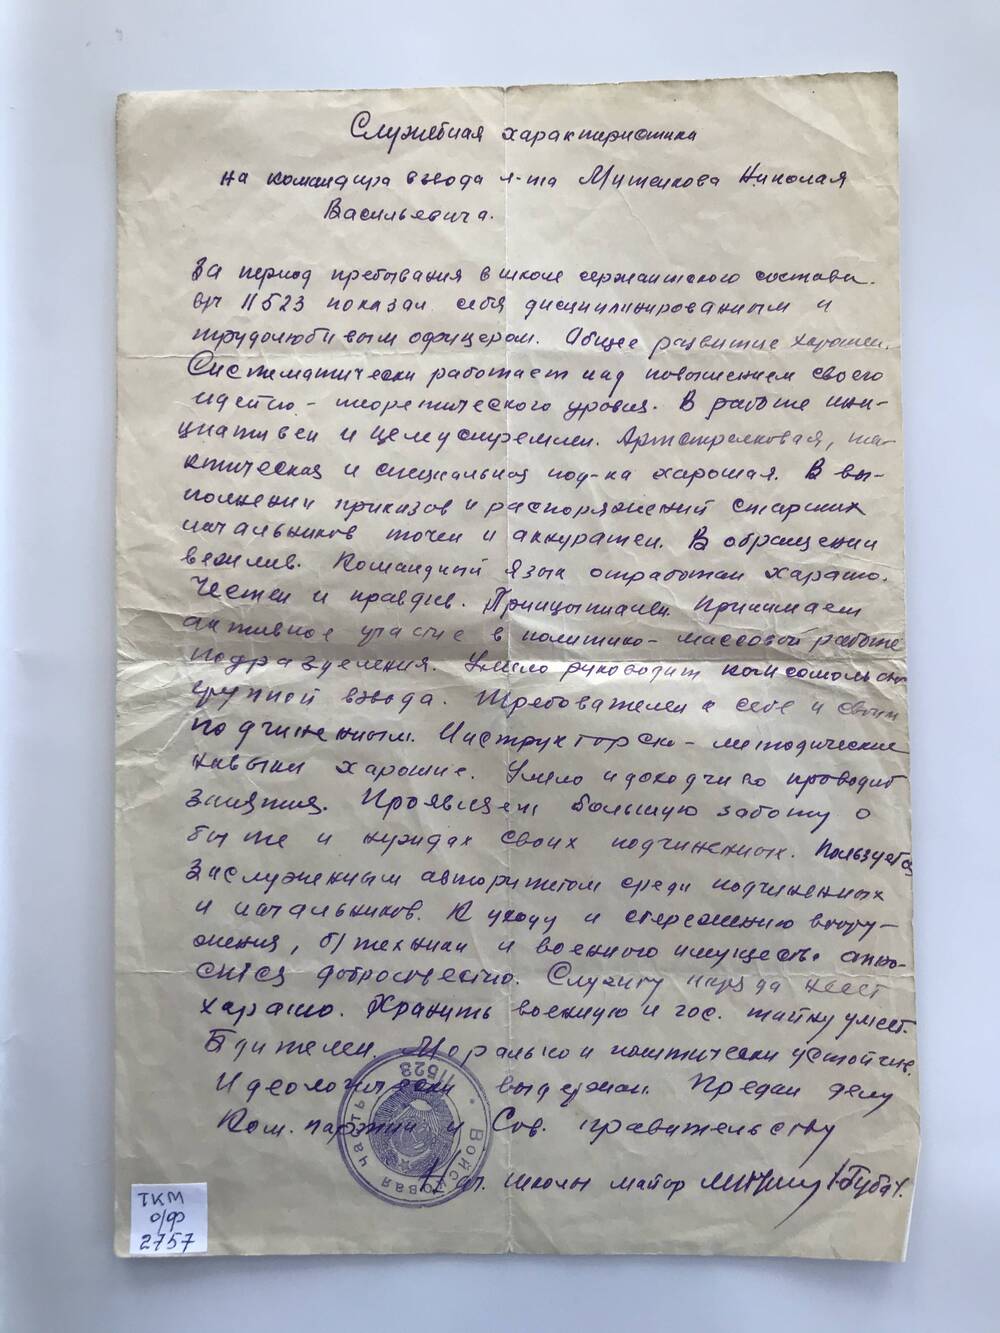 Служебная характеристика
на командира взвода л-та Митенкова Николая
Васильевича.
За период пребывания в школе сержантского состава
в/ч 11523 показал себя дисциплинированным и
трудолюбивым офицером. Общее развитие харошее.
Систематически работает над повышением своего
идейно-теоретического уровня. В работе ини-
циативен и целеустремлен. Артстрелковая, так-
ктическая и специальная под-ка харошая. В вы-
полнении приказов и распоряжений старших
начальников точен и аккуратен. В обращении
вежлив. Командный язык отработан харашо.
Честен и правдив. Принцыпиален. Принимает
активное участие в политико-массовой работе
подразделения. Умело руководит комсомольской
группой взвода. Требователен к себе и своим
подчиненным. Инструкторско-методические
навыки харошие. Умело и доходчиво проводит
занятия. Проявляет большую заботу о
быте и нуждах своих подчиненных. Пользуется
заслуженным авторитетом среди подчиненных
и начальников. К уходу и сбережению воору-
жения, б/техники и военного имущества отно-
сится добросовестно. Службу наряда несет
харашо. Хранить военную и гос. тайну умеет.
Бдителен. Морально и политически устойчив.
Идеологически выдержан. Предан делу
Ком. партии и Сов. правительству
Нач. школы майор /Бубач.
Войсковая часть 11523
ТКМ
о/ф
2757